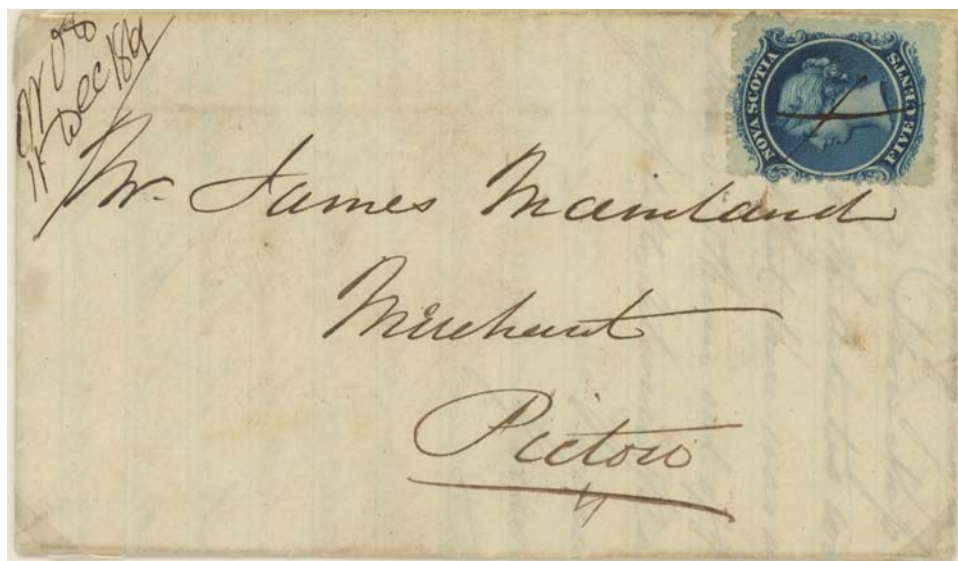 Dec 1869
NOVA SCOTIA
FIVE CENTS
Mr. James Mainland
Merchant
Pictou